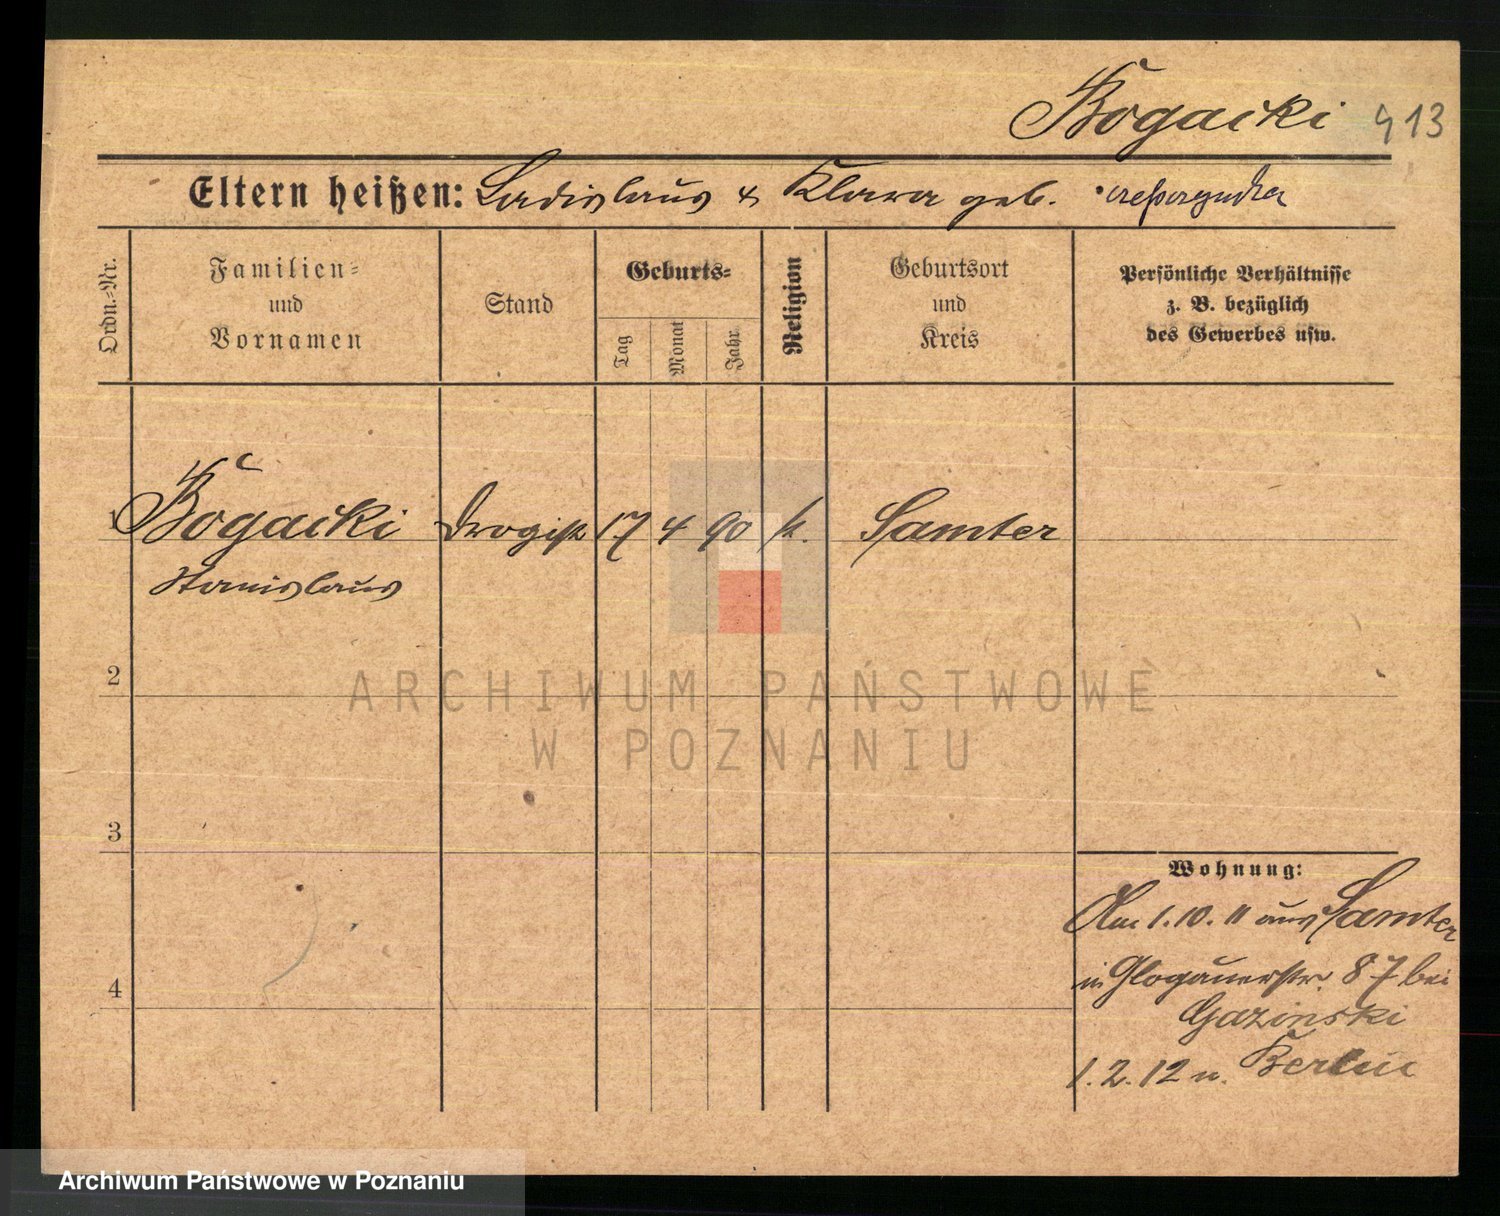 Bogacki 913
Eltern heißen: Ladislaus & Klara geb.
Ordn.-Nr.
Familien-
und
Vornamen
Stand
Geburts-
Tag
Monat
Jahr
Religion
Geburtsort
und
Kreis
Persönliche Verhältnisse
z. B. bezüglich
des Gewerbes usw.
1 Bogacki Drogist 17 4 90 k. Samter
Stanislaus
2
ARCHIWUM PAŃSTWOWE
W POZNANIU
3
Wohnung:
Am 1.10.11 aus Samter
in Glogauerstr. 87 bei
Gazinski
4
1.2.12 n. Berlin
Archiwum Państwowe w Poznaniu